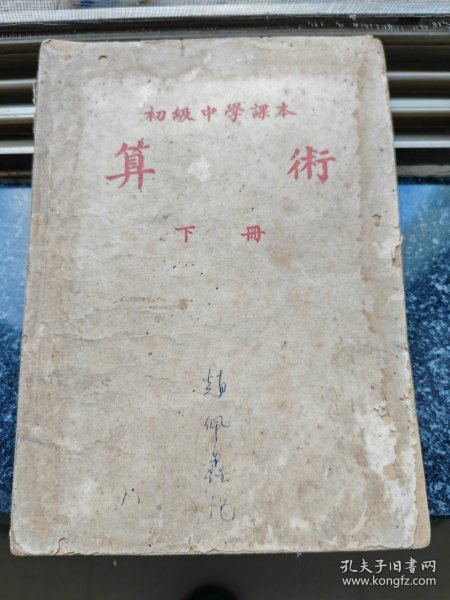 初級中學課本
算術
下冊
趙佩鑫記
孔夫子旧书网
www.kongfz.com